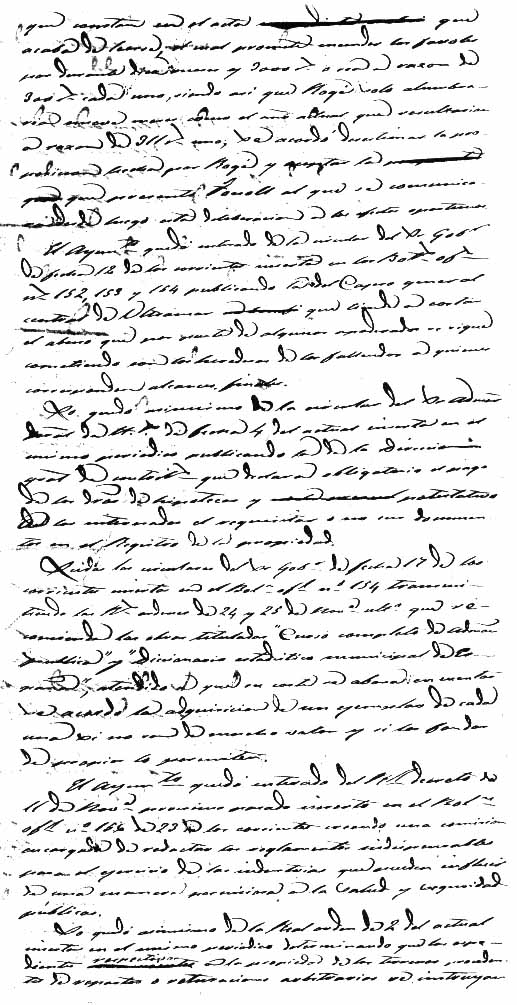 que constan en el acta que
acaba de leerse, el cual promete encender los faroles
por durante diez meses y 3000 r.s o sea a razon de
300 r.s cada uno, siendo así que Roge solo alumbra-
nueve meses el año actual que resultarian
a razon de 311 r.s uno; se acordó desestimar la pro-
posicion hecha por Roge y aceptar la
que presenta Forcell al que se comunica-
desde luego esta deliberacion a los efectos oportunos.
El Ayunt.to quedó enterado de la circular del Sr. Gob.r
de fecha 12 de los corrientes inserta en los Bol.s of.s
n.os 152, 153 y 154 publicando la del Cajero general
central de Ultramar que tiende a cortar
el abuso que por muerte de algunos apoderados se sigue
cometiendo con los herederos de los fallecidos a quienes
corresponden alcances finales.
Lo quedó asimismo de la circular del Sr. Admin
de H. de fecha 4 del actual inserta en el
mismo periodico publicando la de la Direccion
gral de contrib.s que declara obligatorio el pago
de los dros de hipotecas y potestativo
de los interesados el requisitar o no sus documen-
tos en el Registro de la propiedad.
Leida la circular del Sr Gob.r de fecha 17 de los
corrientes inserta en el Bol. of.l n.o 154 transcri-
biendo las R.s ordenes de 24 y 25 de Nov.e ult.o que re-
comiendan las obras tituladas "Curso completo de Admon
publica" y "Diccionario estadistico municipal de Es-
paña", atendido a que su coste se abona en cuentas
se acordó la adquisicion de un ejemplar de cada
una si no son de mucho valor y si los fondos
de propios lo permiten.
El Ayunt.to quedó enterado del R.l Decreto de
11 de Nov.e proximo pasado inserto en el Bol.n
of.l n.o 156 de 23 de los corrientes creando una comision
encargada de redactar los reglamentos indispensables
para el ejercicio de las industrias que pueden influir
de una manera perniciosa a la salud y seguridad
públicas.
Lo quedó asimismo de la Real orden de 2 del actual
inserta en el mismo periodico determinando que los espe-
dientes respectivos a la propiedad de los terrenos proceden-
tes de repartos o roturaciones arbitrarias se instruyan